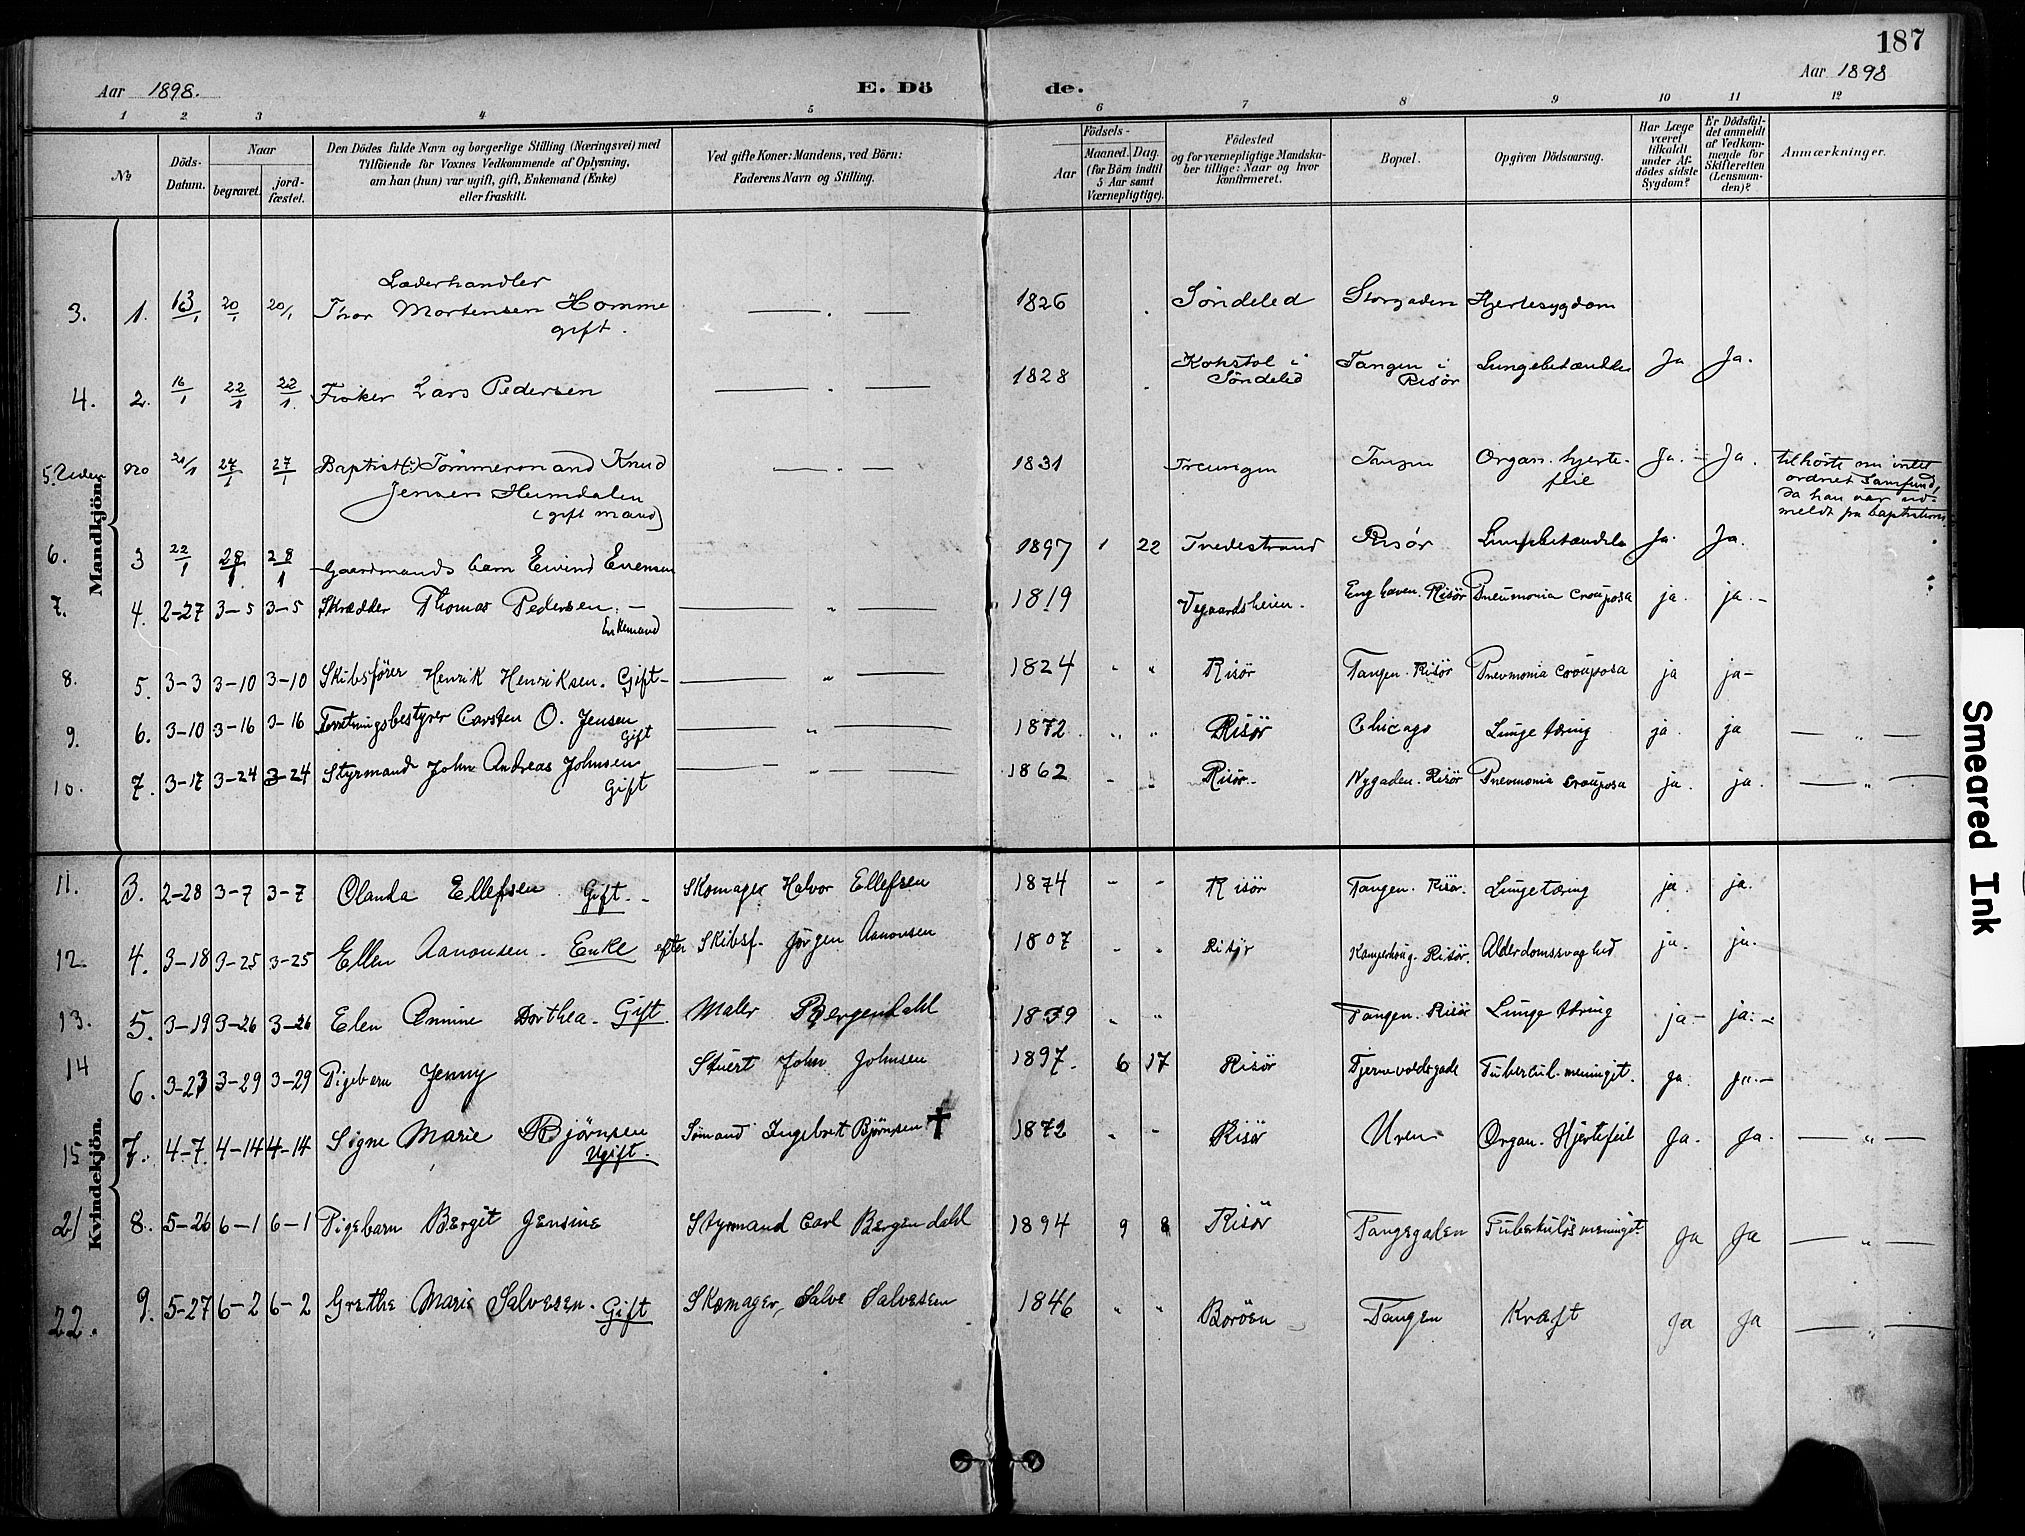 187
Aar 1898.
E. Dö de.
Aar 1898
1 2 3 4 5 6 7 8 9 10 11 12
№
Döds-Datum.
Naar
begravet.
jord-fæstet.
Den Dödes fulde Navn og borgerlige Stilling (Næringsvei) med
Tilföiende for Voxnes Vedkommende af Oplysning,
om han (hun) var ugift, gift, Enkemand (Enke)
eller fraskilt.
Ved gifte Koner: Mandens, ved Börn:
Faderens Navn og Stilling.
Födsels-
Aar
Maaned. Dag.
(for Börn indtil
5 Aar samt
Værnepligtige).
Födested
og for værnepligtige Mandska-
ber tillige: Naar og hvor
konfirmeret.
Bopæl.
Opgiven Dödsaarsag.
Har Læge
været
tilkaldt
under Af-
dödes sidste
Sygdom?
Er Dödsfal-
det anmeldt
af Vedkom-
mende for
Skifteretten
(Lensman-
den)?
Anmærkninger.
Mandkjön.
Læderhandler
3. 1. 13/1 20/1 20/1 Thor Mortensen Homme — . — 1826 . Söndeled Storgaden Hjertesygdom
gift.
4. 2. 16/1 22/1 22/1 Fisker Lars Pedersen — . — 1828 . Kokstol i Söndeled Tangen i Risør Lungebetændelse Ja Ja.
5. Uden no 21/1 27/1 27/1 Baptist(:) Tömmermand Knud — . — 1831 Treungen Tangen Organ. hjerte-feil Ja. Ja. tilhörte nu intet
Jensen Heimdalen ordnet Samfund,
(gift mand) da han var ud-
meldt fra baptisterne
6. 3 22/1 28/1 28/1 Gaardmands barn Eivind Evensen 1897 1 22 Tvedestrand Risør Lungebetændelse Ja. Ja.
7. 4. 2-27 3-5 3-5 Skrædder Thomas Pedersen. — „ — 1819 Vegaardsheien. Enghaven. Risör Pneumonia crouposa ja. ja.-
Enkemand
8. 5. 3-3 3-10 3-10 Skibsfører Henrik Henriksen. Gift- — „ — 1824 " " Risör Tangen. Risör Pnevmonia crouposa ja ja-
9. 6. 3-10 3-16 3-16 Forretningsbestyrer Carsten O. Jensen — „ — 1872 . „ " Risör Chicago Lungetæring ja. ja — „ —
Gift
10. 7. 3-17 3-24 3-24 Styrmand John Andreas Johnsen — „ — 1862 - „ Risör- Nygaden. Risör Pnevmonia crouposa ja. ja. — „ —
Gift
Kvindekjön.
11. 3. 2-28 3-7 3-7 Olanda Ellefsen Gift.- Skomager Halvor Ellefsen 1874 - - Risör Tangen. Risör. Lungetæring ja ja.
12. 4. 3-18 3-25 3-25 Ellen Aanonsen. Enke efter Skibsf. Jørgen Aanonsen 1807 - . Risør Kamperhoug. Risör. Alderdomssvaghed ja. ja.
13. 5. 3-19 3-26 3-26 Elen Dorthea. Gift Maler Bergendahl 1839 „ " Tangen. Risör Lungetæring ja- ja.-
14 6. 3-23 3-29 3-29 Pigebarn Jenny Stuert John Johnsen 1897. 6 17 Risör Tjernevoldsgade Tubercul. meningit. ja. ja.-
15 7. 4-7. 4-14 4-14 Signe Marie Bjørnsen Sömand Ingebret Bjørnsen † 1872 " - Risör Uren Organ. Hjertefeil Ja. Ja. — „ —
Ugift.
21 8. 5-26 6-1 6-1 Pigebarn Bergit Jensine Styrmand Carl Bergendahl 1894 9 8 Risör Tangegaden Tuberkuløs meningit. Ja Ja — „ —
22. 9. 5-27 6-2 6-2 Grethe Marie Salvesen. Gift Skomager, Salve Salvesen 1846 " " Boröen Tangen Kræft Ja Ja — „ —
Smeared Ink